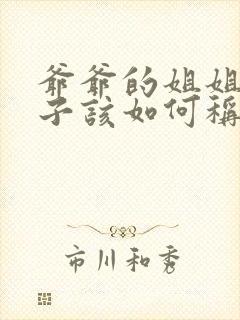 爷爷的姐姐
子该如何称
市川和秀